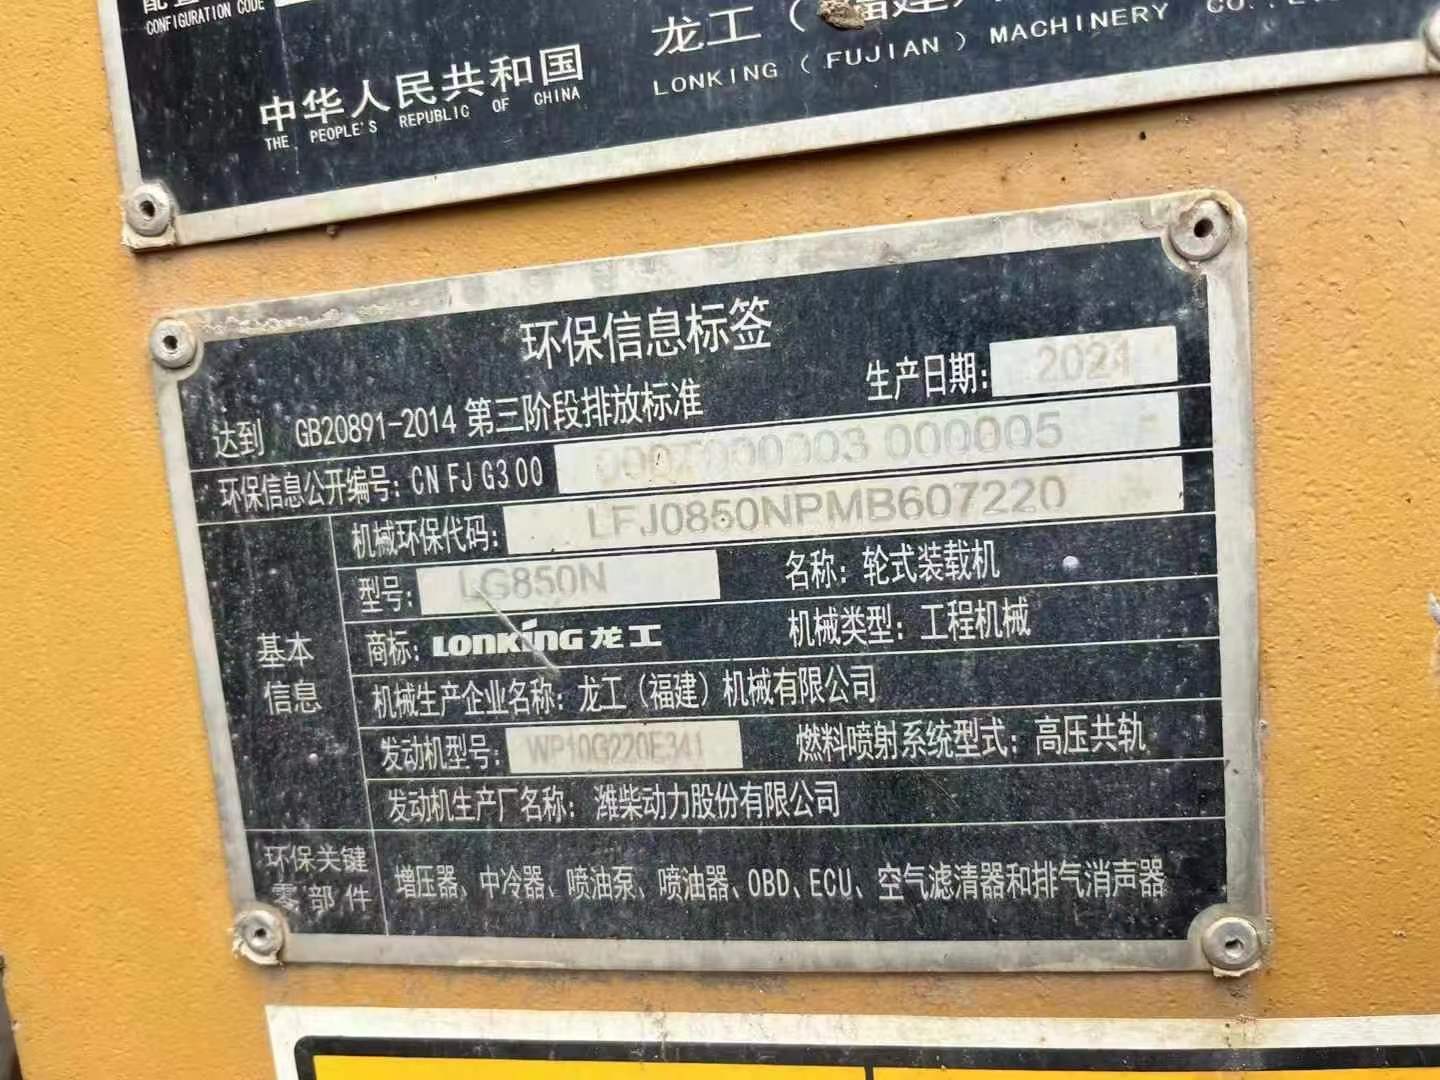 CONFIGURATION CODE
中华人民共和国
THE PEOPLE'S REPUBLIC OF CHINA
龙工（福建）
LONKING (FUJIAN) MACHINERY CO.,
环保信息标签
达到 GB20891-2014 第三阶段排放标准
生产日期: 2021
环保信息公开编号: CN FJ G3 00 000003 000005
机械环保代码: LFJ0850NPMB607220
型号: LG850N
名称: 轮式装载机
基本信息
商标: LONKING 龙工
机械类型: 工程机械
机械生产企业名称: 龙工（福建）机械有限公司
发动机型号: WP10G220E341
燃料喷射系统型式: 高压共轨
发动机生产厂名称: 潍柴动力股份有限公司
环保关键零部件
增压器、中冷器、喷油泵、喷油器、OBD、ECU、空气滤清器和排气消声器